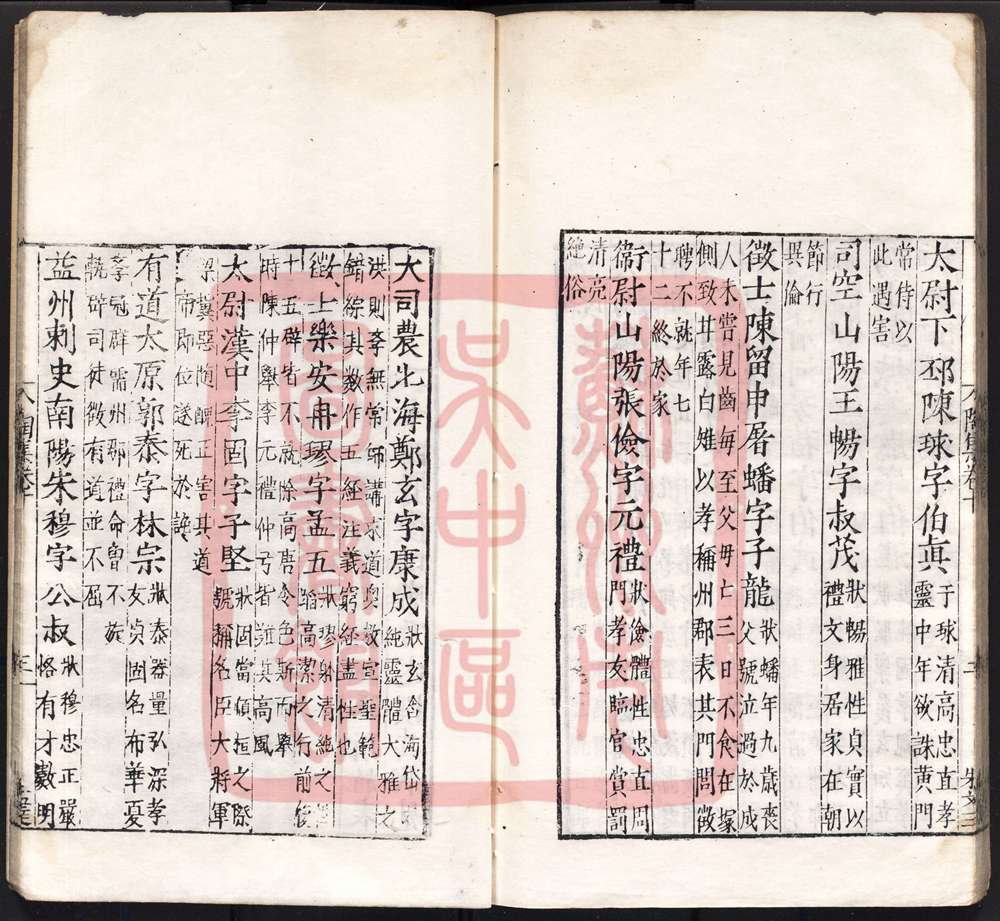 太尉下邳陳球字伯真 于球清高忠直孝
靈中年欲誅黄門
常侍以
此遇害
司空山陽王暢字叔茂 狀暢雅性貞實以
禮文身居家在朝
節行
異倫
徵士陳留申屠蟠字子龍 狀蟠年九歲喪
父號泣過於成
人未嘗見齒每至父母亡三日不食在冢
側致甘露白雉以孝稱州郡表其門閭徵
聘不就年七
十二終於家
衛尉山陽張儉字元禮 狀儉體性忠直閨
門孝友臨官賞罰
清亮
絶俗
大司農北海鄭玄字康成 狀玄含海岱
純靈體大雅之
洪則李無常師講求道奧敷宣聖範
錯綜其數作五經注義窮經盡性也
徵士樂安冉璆字孟玉 狀璆躬清純之
蹈高潔之行前後
十五辟皆不就除高唐令色斯而舉
時陳仲舉李元禮仲弓皆難其高風
太尉漢中李固字子堅 狀固當頃桓之際
號稱名臣大將軍
梁冀惡直醜正害其道
帝即位遂死於讒
有道太原郭泰字林宗 狀泰器量弘深孝
友貞固名布華夏
學冠群儒州郡禮命曾不旋
軌辟司徒徵有道並不屈
益州刺史南陽朱穆字公叔 狀穆忠正嚴
恪有才數明
圖書館
吴中區